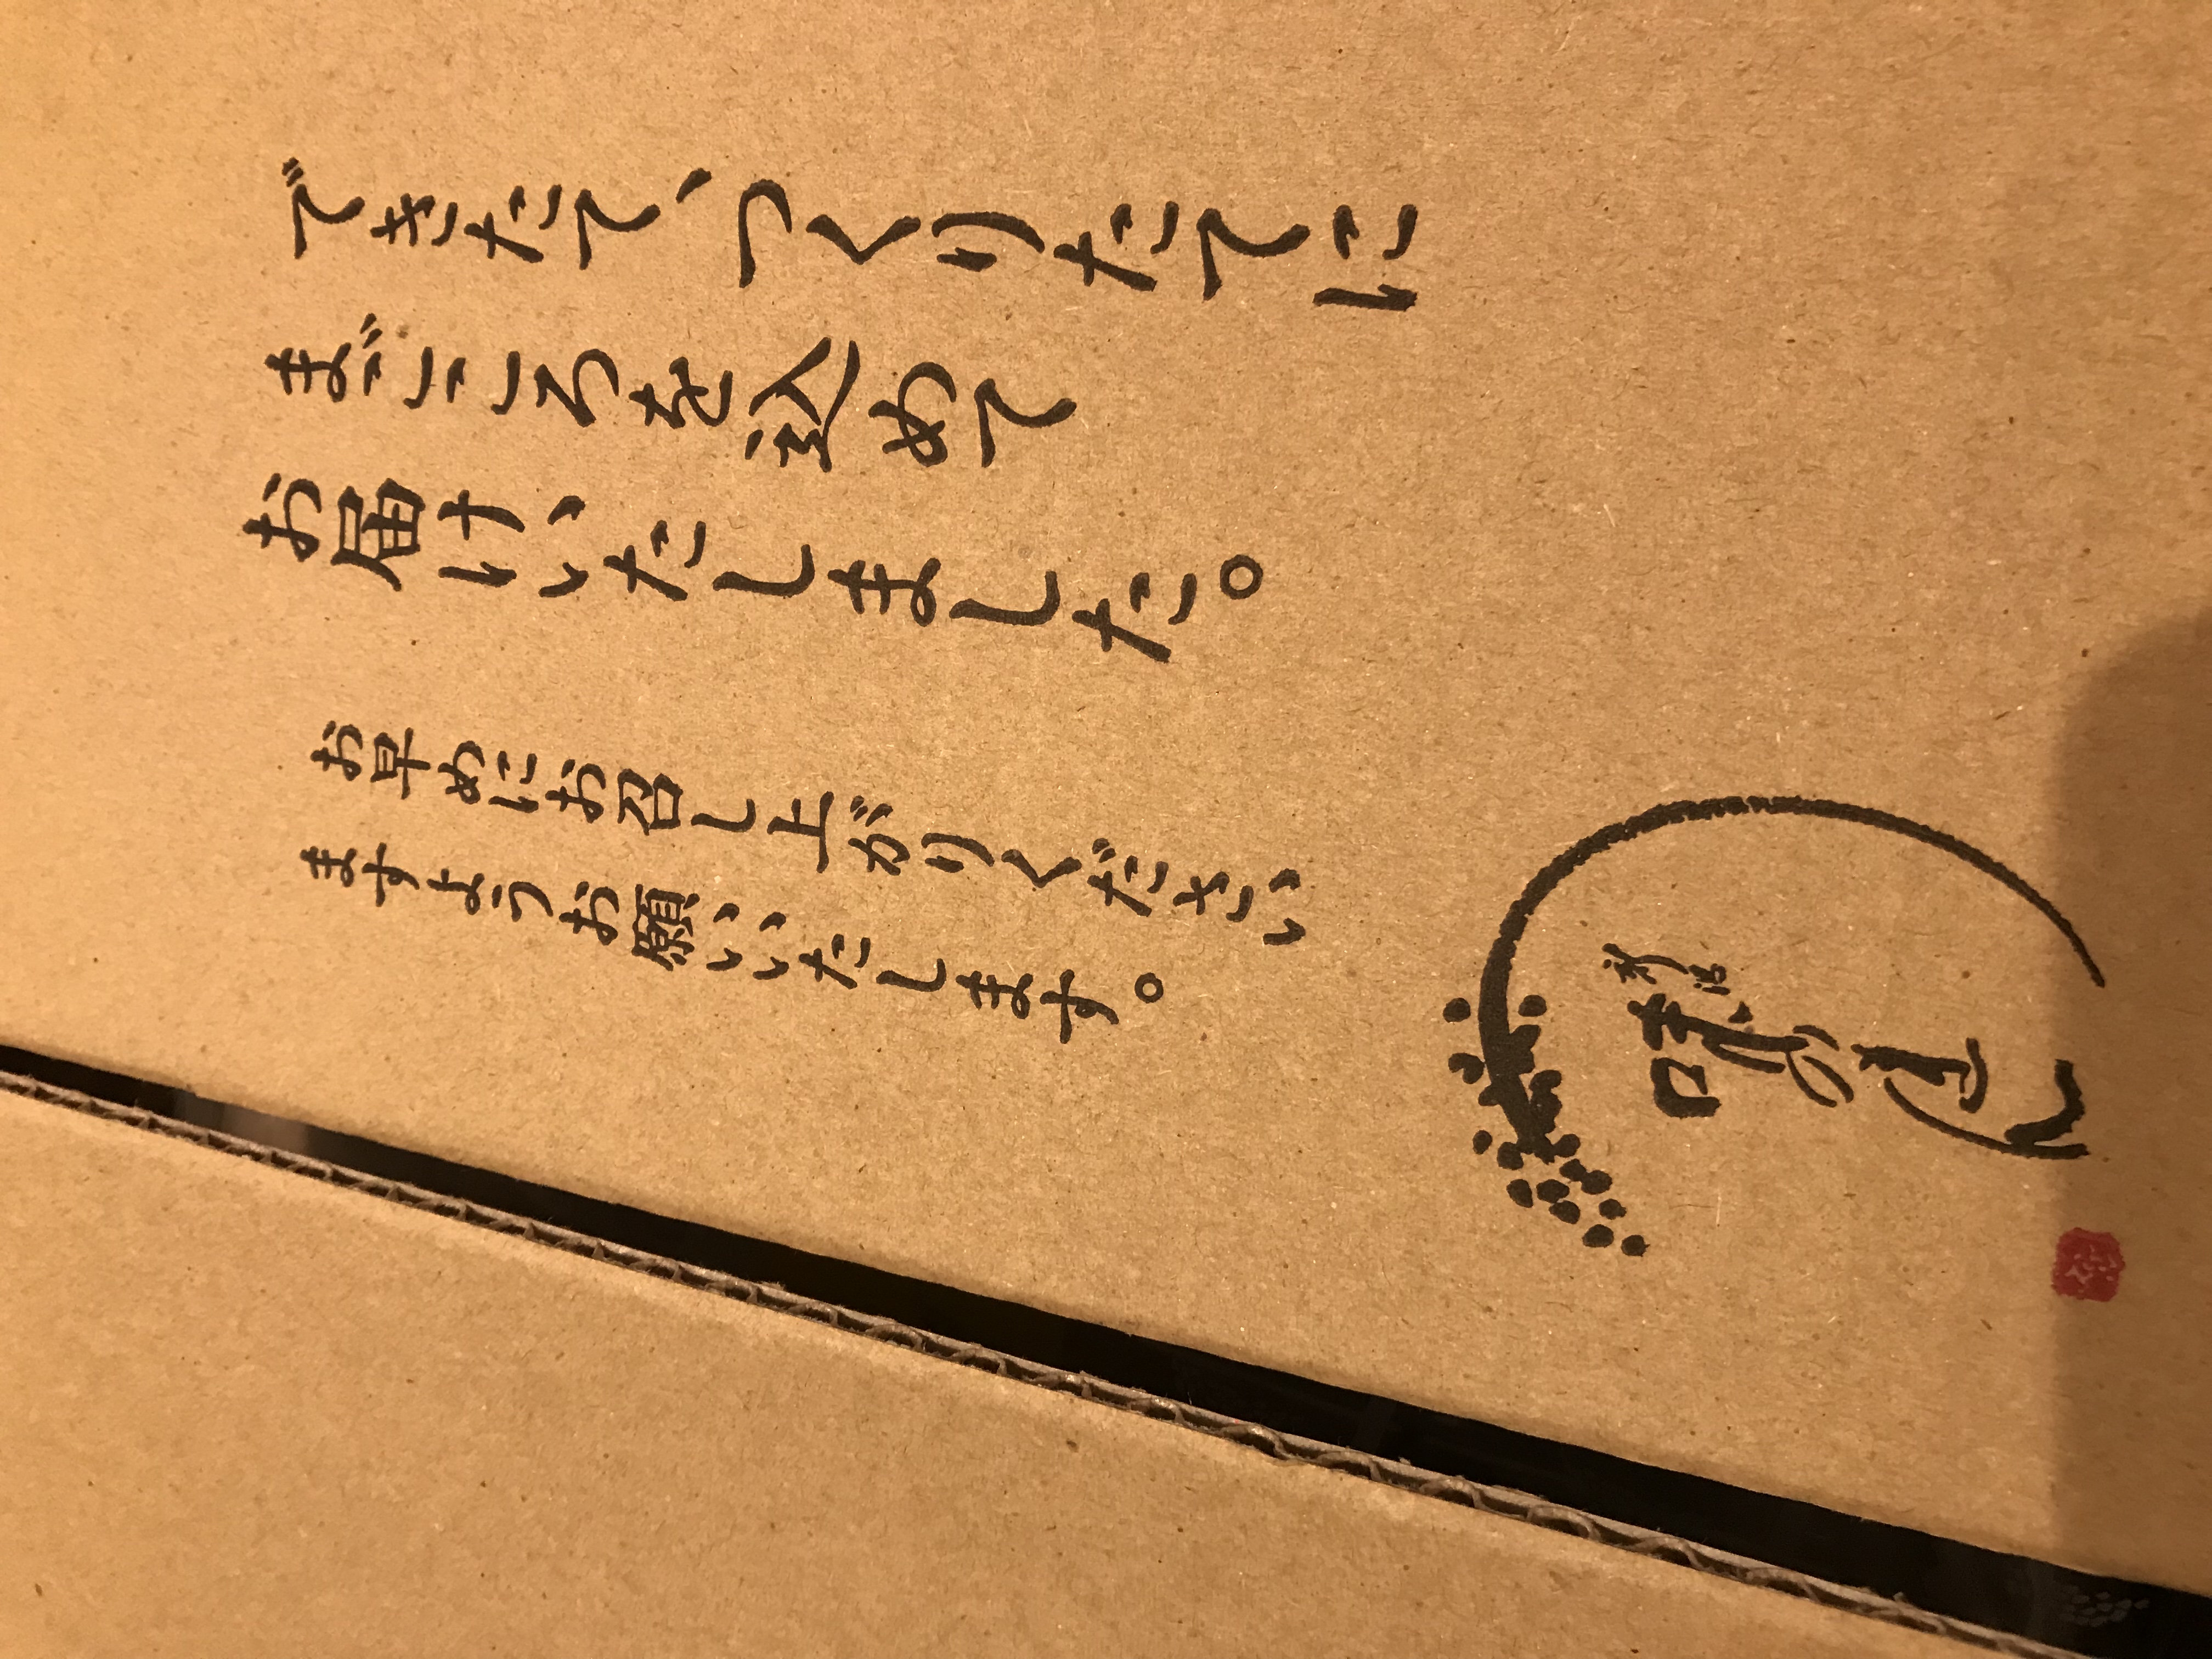 できたて、つくりたてに
まごころを込めて
お届けいたしました。
お早めにお召し上がりください
ますようお願いいたします。
味の